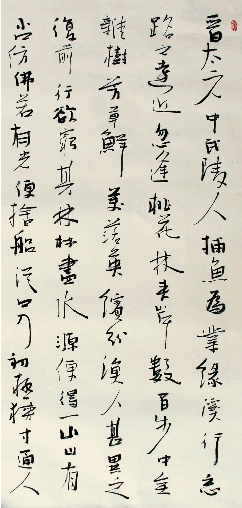 晉太元中武陵人捕魚為業緣溪行忘
路之遠近忽逢桃花林夾岸數百步中無
雜樹芳草鮮美落英繽紛漁人甚異之
復前行欲窮其林林盡水源便得一山山有
小口仿佛若有光便捨船從口入初極狹才通人